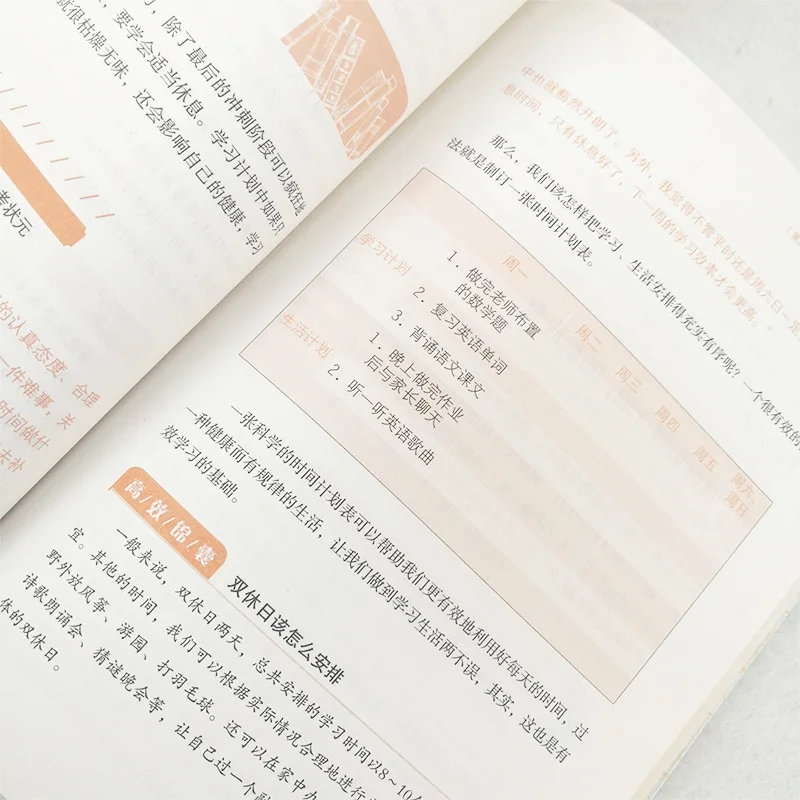 ，除了最后的冲刺阶段可以疯狂地
，要学会适当休息。学习计划中如果只
就很枯燥无味，还会影响自己的健康，学习
考状元
的认真态度、合理
件难事，关
时间做什
去补
中也就豁然开朗了。另外，我觉得不管平时还是周六日一定
息时间，只有休息好了，下一周的学习效率才会更高。”
那么，我们该怎样把学习、生活安排得充实有序呢？一个很有效的
法就是制订一张时间计划表。
周一 周二 周三 周四 周五 周六、周日
学习计划
1. 做完老师布置
的数学题
2. 复习英语单词
3. 背诵语文课文
生活计划
1. 晚上做完作业
后与家长聊天
2. 听一听英语歌曲
一张科学的时间计划表可以帮助我们更有效地利用好每天的时间，过
一种健康而有规律的生活，让我们做到学习生活两不误，其实，这也是有
效学习的基础。
高/效/锦/囊
双休日该怎么安排
一般来说，双休日两天，总共安排的学习时间以8～10
宜。其他的时间，我们可以根据实际情况合理地进行
野外放风筝、游园、打羽毛球。还可以在家中办
诗歌朗诵会、猜谜晚会等，让自己过一个
体的双休日。